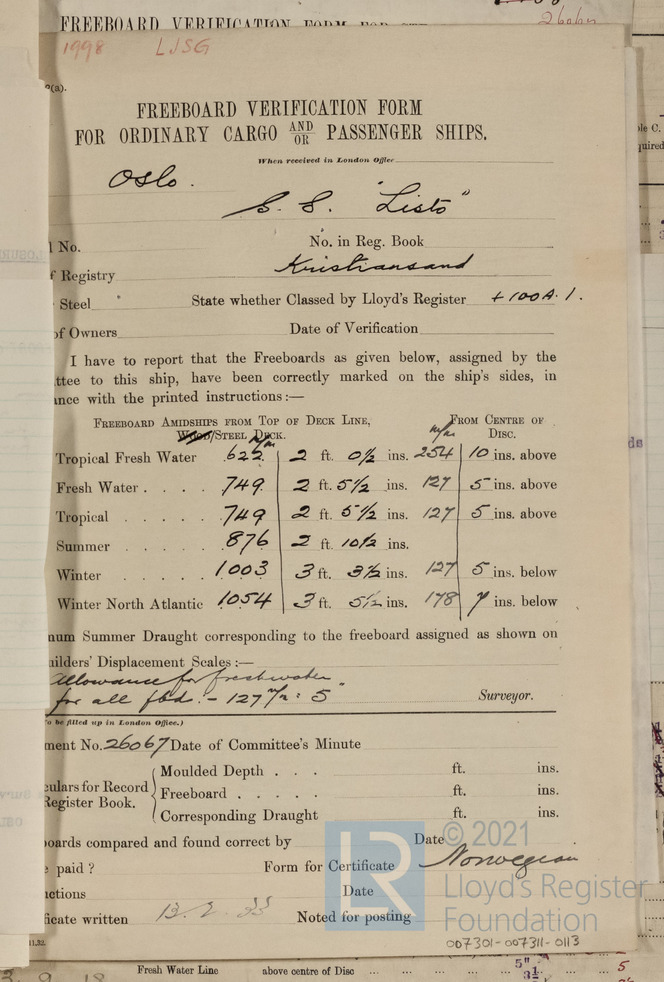 FREEBOARD VERIFICATION FORM FOR
26067
1998 LJSG
(a).
FREEBOARD VERIFICATION FORM
FOR ORDINARY CARGO AND/OR PASSENGER SHIPS.
When received in London Office
Oslo.
S. S. "Listo"
No. No. in Reg. Book
f Registry Kristiansand
Steel State whether Classed by Lloyd's Register + 100 A. 1.
of Owners Date of Verification
I have to report that the Freeboards as given below, assigned by the
ttee to this ship, have been correctly marked on the ship's sides, in
ance with the printed instructions:—
FREEBOARD AMIDSHIPS FROM TOP OF DECK LINE, FROM CENTRE OF
WOOD/STEEL DECK. m/m m/m DISC.
Tropical Fresh Water 622 2 ft. 0½ ins. 254 10 ins. above
Fresh Water . . . . 749 2 ft. 5½ ins. 127 5 ins. above
Tropical . . . . . 749 2 ft. 5½ ins. 127 5 ins. above
Summer . . . . . 876 2 ft. 10½ ins.
Winter . . . . . 1003 3 ft. 3½ ins. 127 5 ins. below
Winter North Atlantic 1054 3 ft. 5½ ins. 178 7 ins. below
num Summer Draught corresponding to the freeboard assigned as shown on
uilders' Displacement Scales :—
Allowance for freshwater
for all fbd. - 127 m/m = 5" Surveyor.
o be filled up in London Office.)
ment No. 26067 Date of Committee's Minute
culars for Record
Register Book.
Moulded Depth . . . ft. ins.
Freeboard . . . . . ft. ins.
Corresponding Draught ft. ins.
boards compared and found correct by Date
paid ? Form for Certificate Norwegian
uctions Date
ficate written 13. 2. 33 Noted for posting
11.32.
© 2021
LR
Lloyd's Register
Foundation
007301-007311-0113
Fresh Water Line above centre of Disc ... ... ... 5" ... ... 5
3½